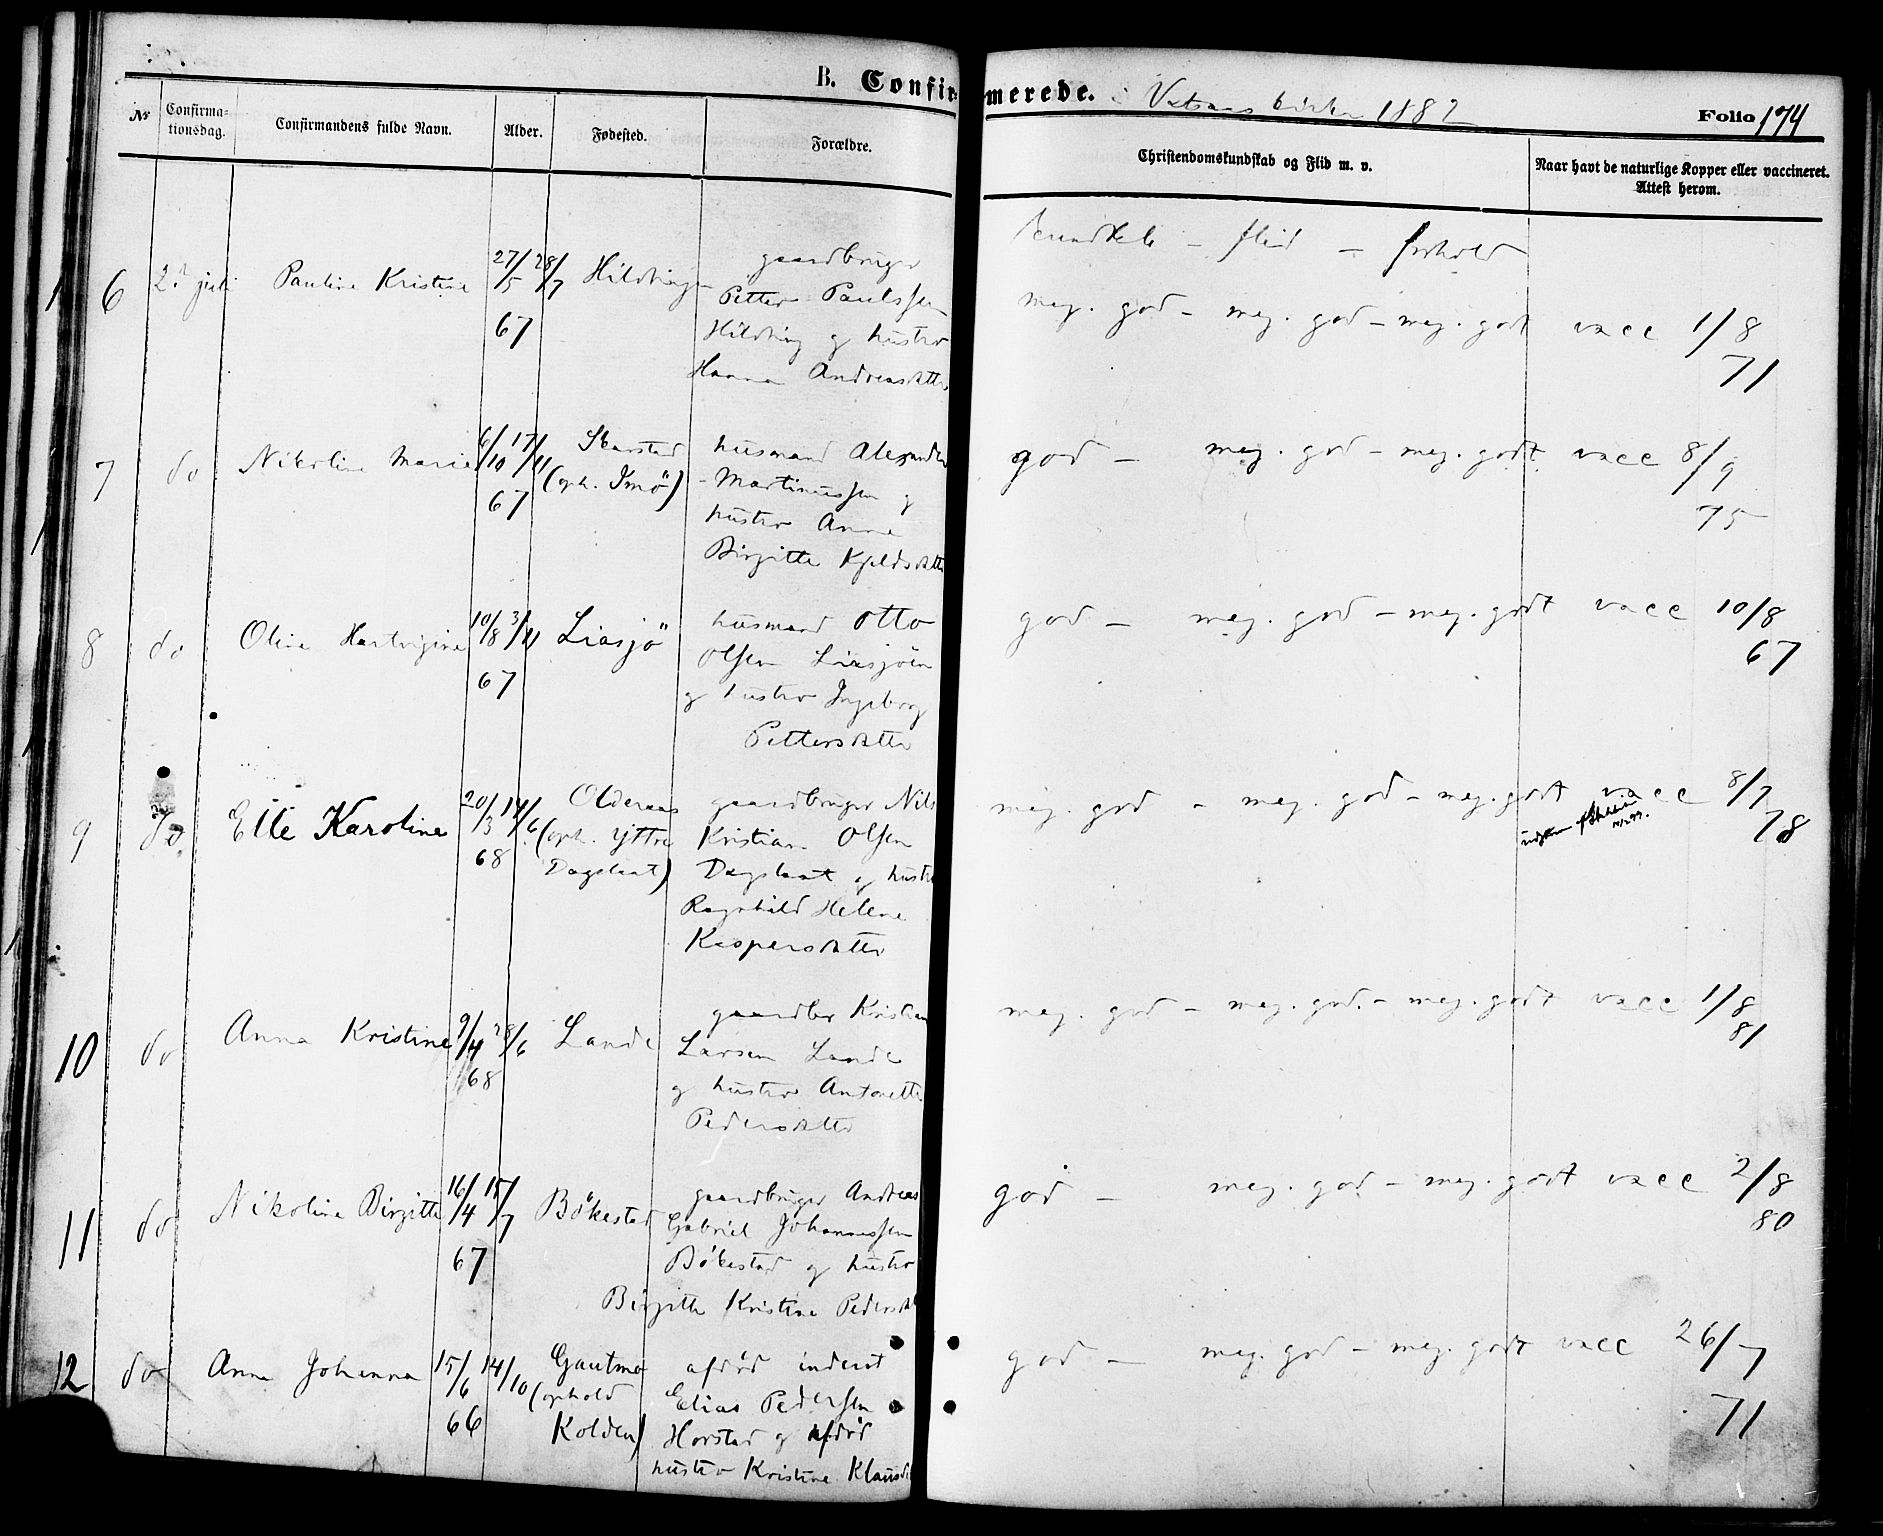 B. Confirmerede. Vatsaas kirke 1882
Folio 174
Nr
Confirma-
tionsdag.
Confirmandens fulde Navn.
Alder.
Fødested.
Forældre.
Christendomskundskab og Flid m. v.
Naar havt de naturlige Kopper eller vaccineret.
Attest herom.
kundskab – flid – forhold
6 2 juli Pauline Kristine 27/5 28/7 67
gaardbruger
Petter Paulssen
Hildring og hustro
Hanna Andreasdatter
meg. god – meg. god – meg. godt vacc 1/8
71
7 do Nikoline Marie 6/10 17/11 67 Skarstad
(oph. Imö)
husmand Alexander
Martinussen og
hustro Anne
Birgitte Kjeldsdatter
god – meg. god – meg. godt vacc 8/9
75
8 do Oline Hartvigine 10/8 3/11 67 Liasjö
husmand Otto
Olsen Liasjöen
og hustro Ingeborg
Pettersdatter
god – meg. god – meg. godt vacc 10/8
67
9 do Elle Karoline 20/3 14/6 68 Olderaas
(oph. Yttre
Dagslaat)
gaardbruger Nils
Kristian Olsen
Dagslaat og hustro
Ragnhild Helene
Kaspersdatter
meg. god – meg. god – meg. godt vacc 8/7
78
10 do Anna Kristine 9/4 28/6 68 Lande
gaardbr Kristian
Larsen Lande
og hustro Antonette
Pedersdatter
meg. god – meg. god. – meg. godt vacc 1/8
81
11 do Nikoline Birgitte 16/4 15/7 67 Bökestad
gaardbruger Andreas
Gabriel Johannessen
Bökestad og hustro
Birgitte Kristine Pedersdat
god – meg. god – meg. godt vacc 2/8
80
12 do Anna Johanna 15/6 14/10 66 Gautmo
(ophold
Kolden)
afdød inderst
Elias Pedersen
Horstad og afdød
hustro Kristine Klausd
god – meg. god – meg. godt vacc 26/7
71